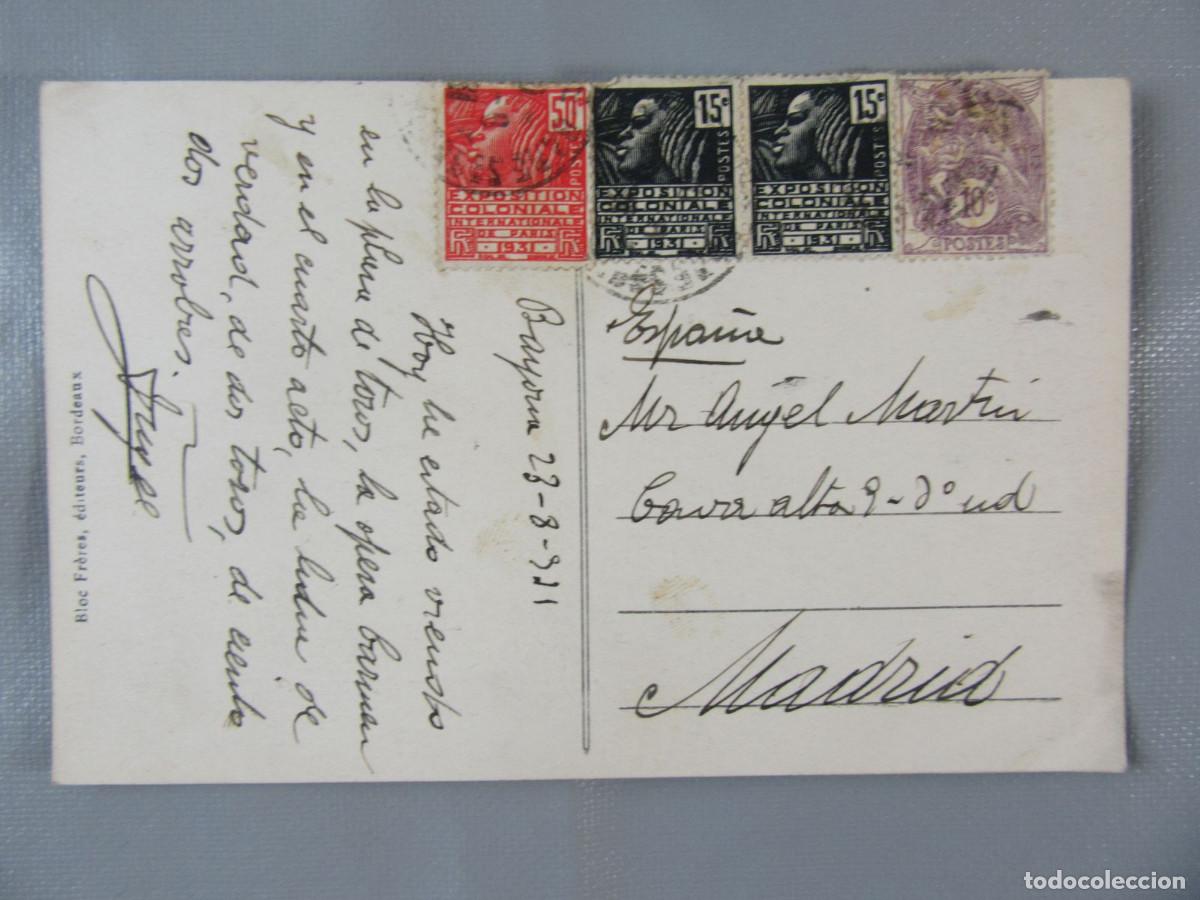 Bayona 23-8-931
Hoy he estado viendo
en la plaza de toros, la opera Carmen
y en el cuarto acto, la lidia de
verdad, de dos toros, de ciento
dos arrobas.
Bloc Frères, éditeurs, Bordeaux
50c
POSTES
EXPOSITION
COLONIALE
INTERNATIONALE
DE PARIS
1931
15c
POSTES
EXPOSITION
COLONIALE
INTERNATIONALE
DE PARIS
1931
15c
POSTES
EXPOSITION
COLONIALE
INTERNATIONALE
DE PARIS
1931
10c
POSTES
España
Mr Angel Martin
Cava alta 9-3º
Madrid
todocoleccion